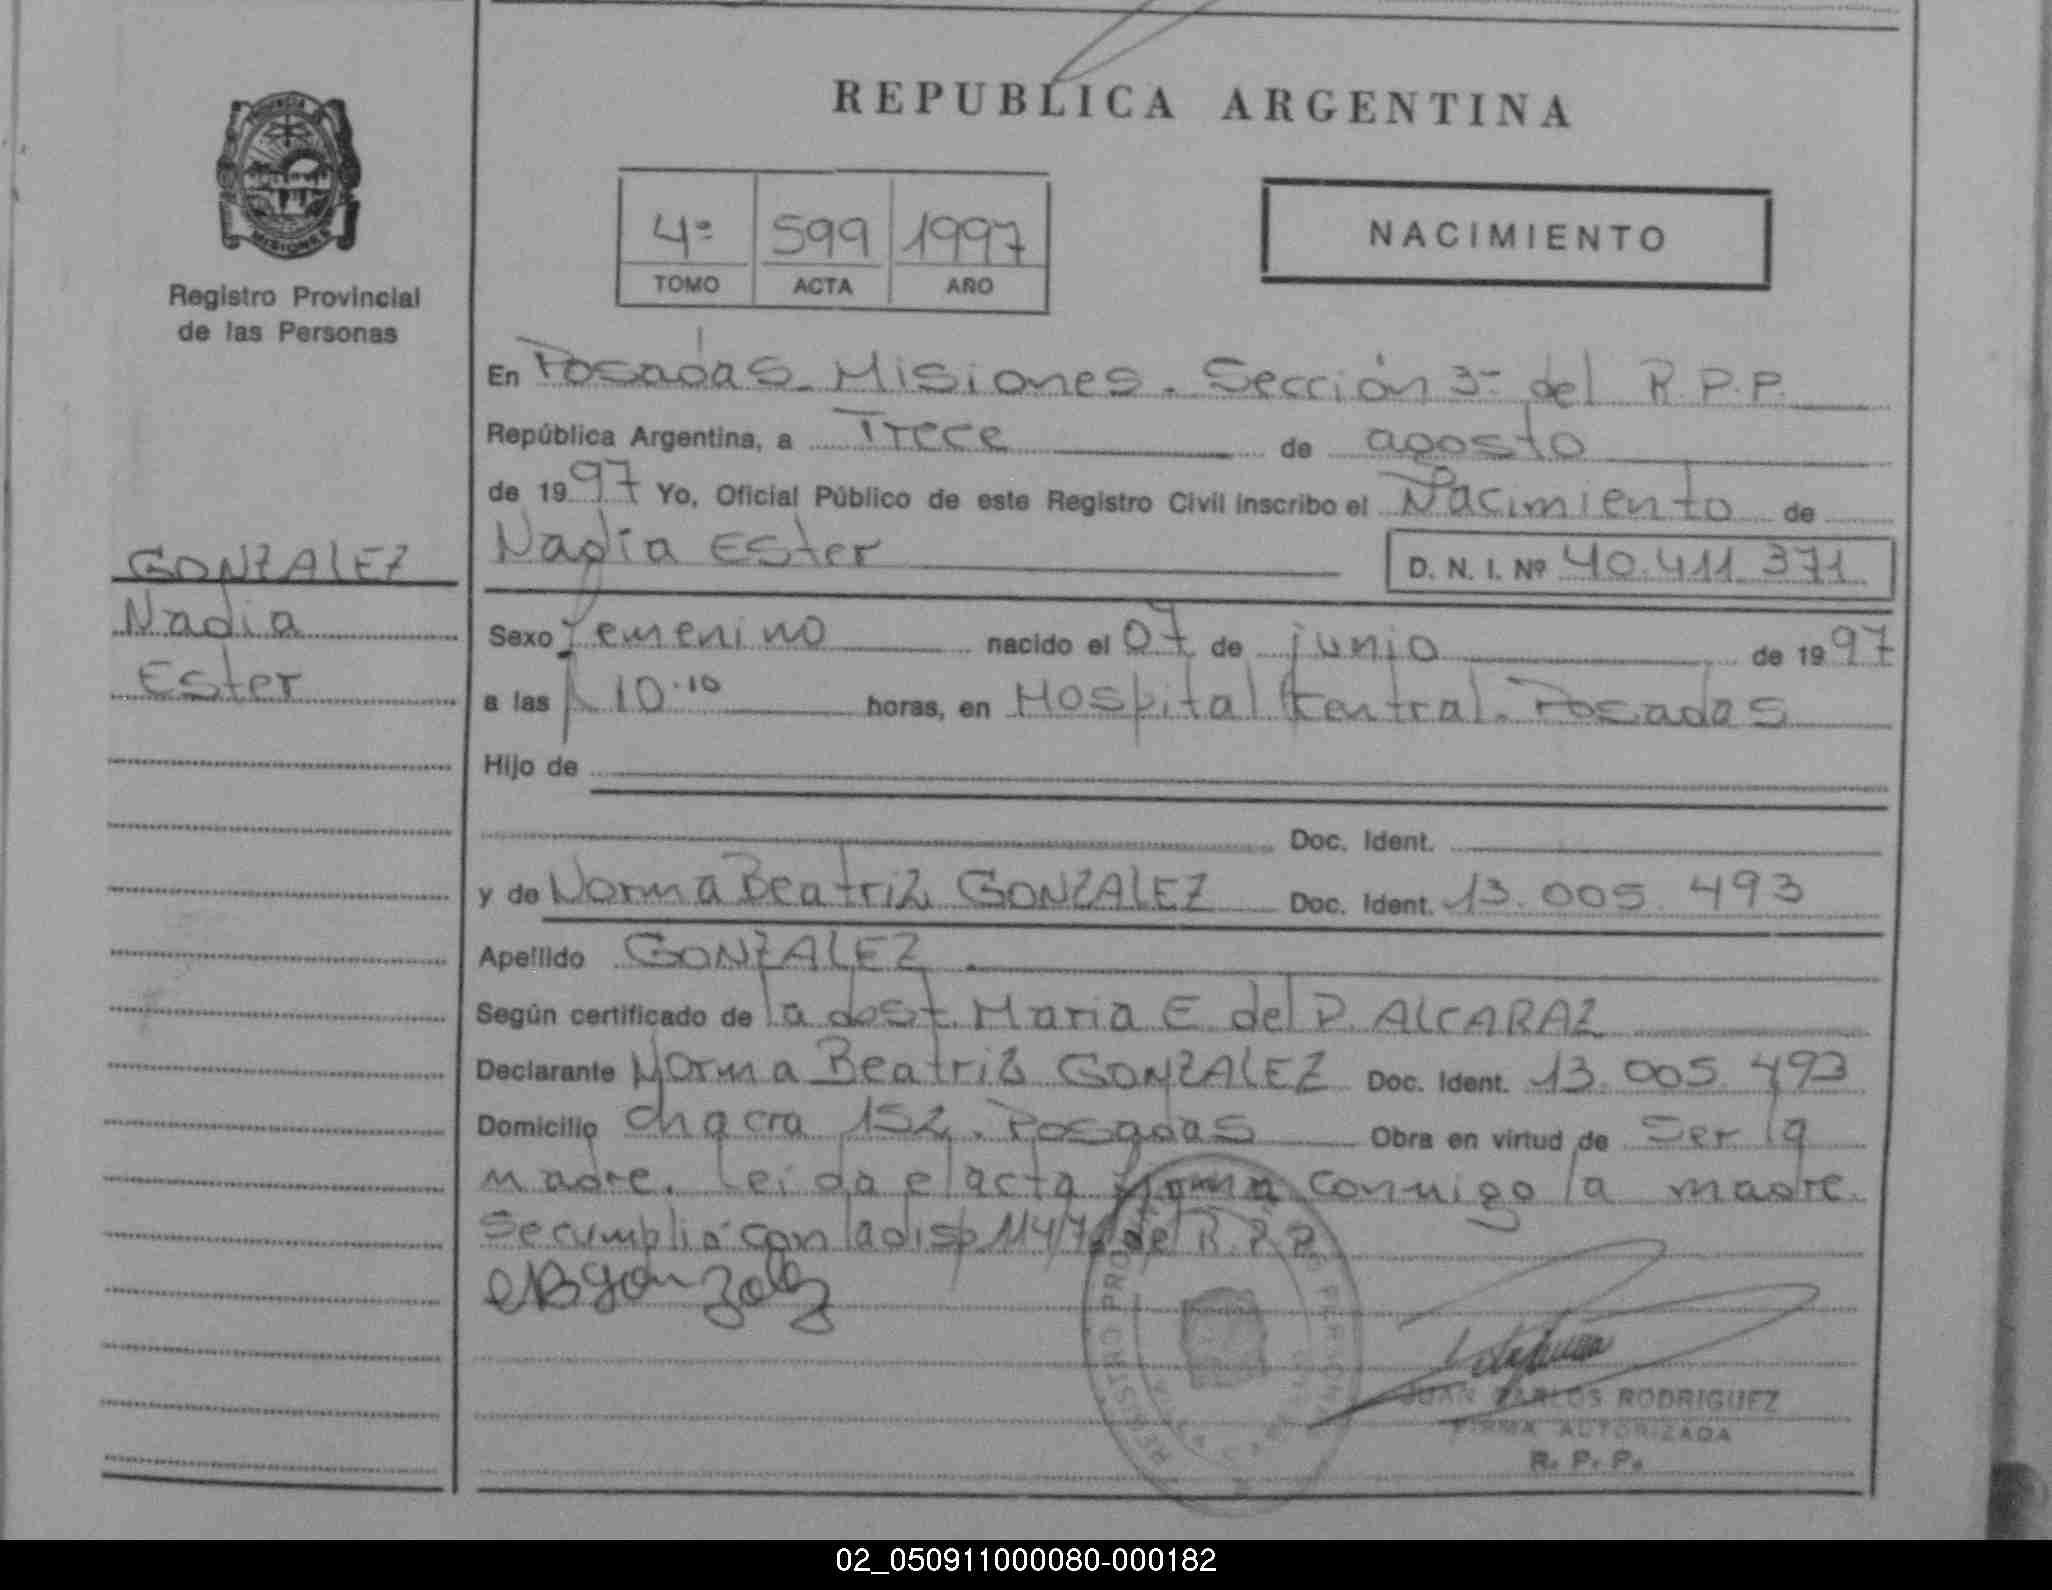 REPUBLICA ARGENTINA
4º 599 1997
TOMO ACTA AÑO
NACIMIENTO
MISIONES
Registro Provincial
de las Personas
GONZALEZ
Nadia
Ester
En Posadas Misiones. Sección 3ª del R.P.P.
República Argentina, a Trece de agosto
de 1997 Yo, Oficial Público de este Registro Civil inscribo el Nacimiento de
Nadia Ester D. N. I. Nº 40.411.371
Sexo femenino nacido el 07 de junio de 1997
a las 10.10 horas, en Hospital Central. Posadas
Hijo de
Doc. Ident.
y de Norma Beatriz GONZALEZ Doc. Ident. 13.005.493
Apellido GONZALEZ.
Según certificado de la obst. Maria E. del P. ALCARAZ
Declarante Norma Beatriz GONZALEZ Doc. Ident. 13.005.493
Domicilio Chacra 152. Posadas Obra en virtud de Ser la
madre. Leida el acta firma conmigo la madre.
Se cumplió con la disp 114/ del R.P.P.
JUAN CARLOS RODRIGUEZ
FIRMA AUTORIZADA
R. P. P.
02_050911000080-000182